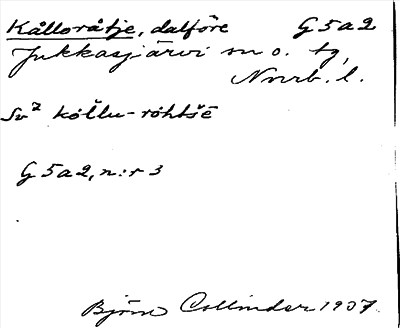 Kålloråtje, dalföre G5a2
Jukkasjärvi sn o. tg,
Norrb. l.
Sv² kòllu-ròhtšē
G5a2, n:r 3
Björn Collinder 1937